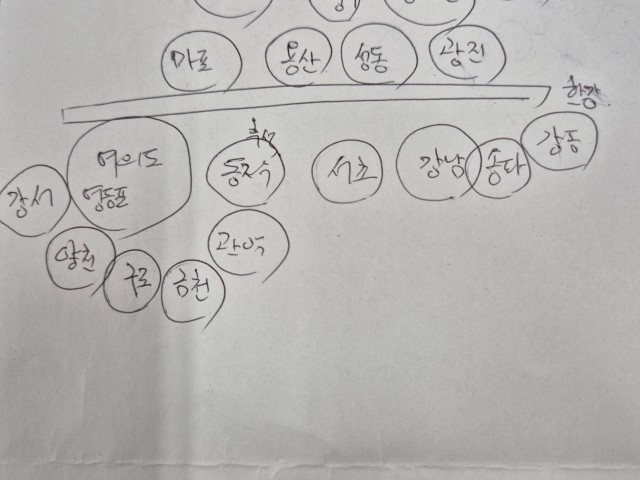 마포
용산
성동
광진
한강
강서
여의도
영등포
동작
서초
강남
송파
강동
양천
구로
금천
관악